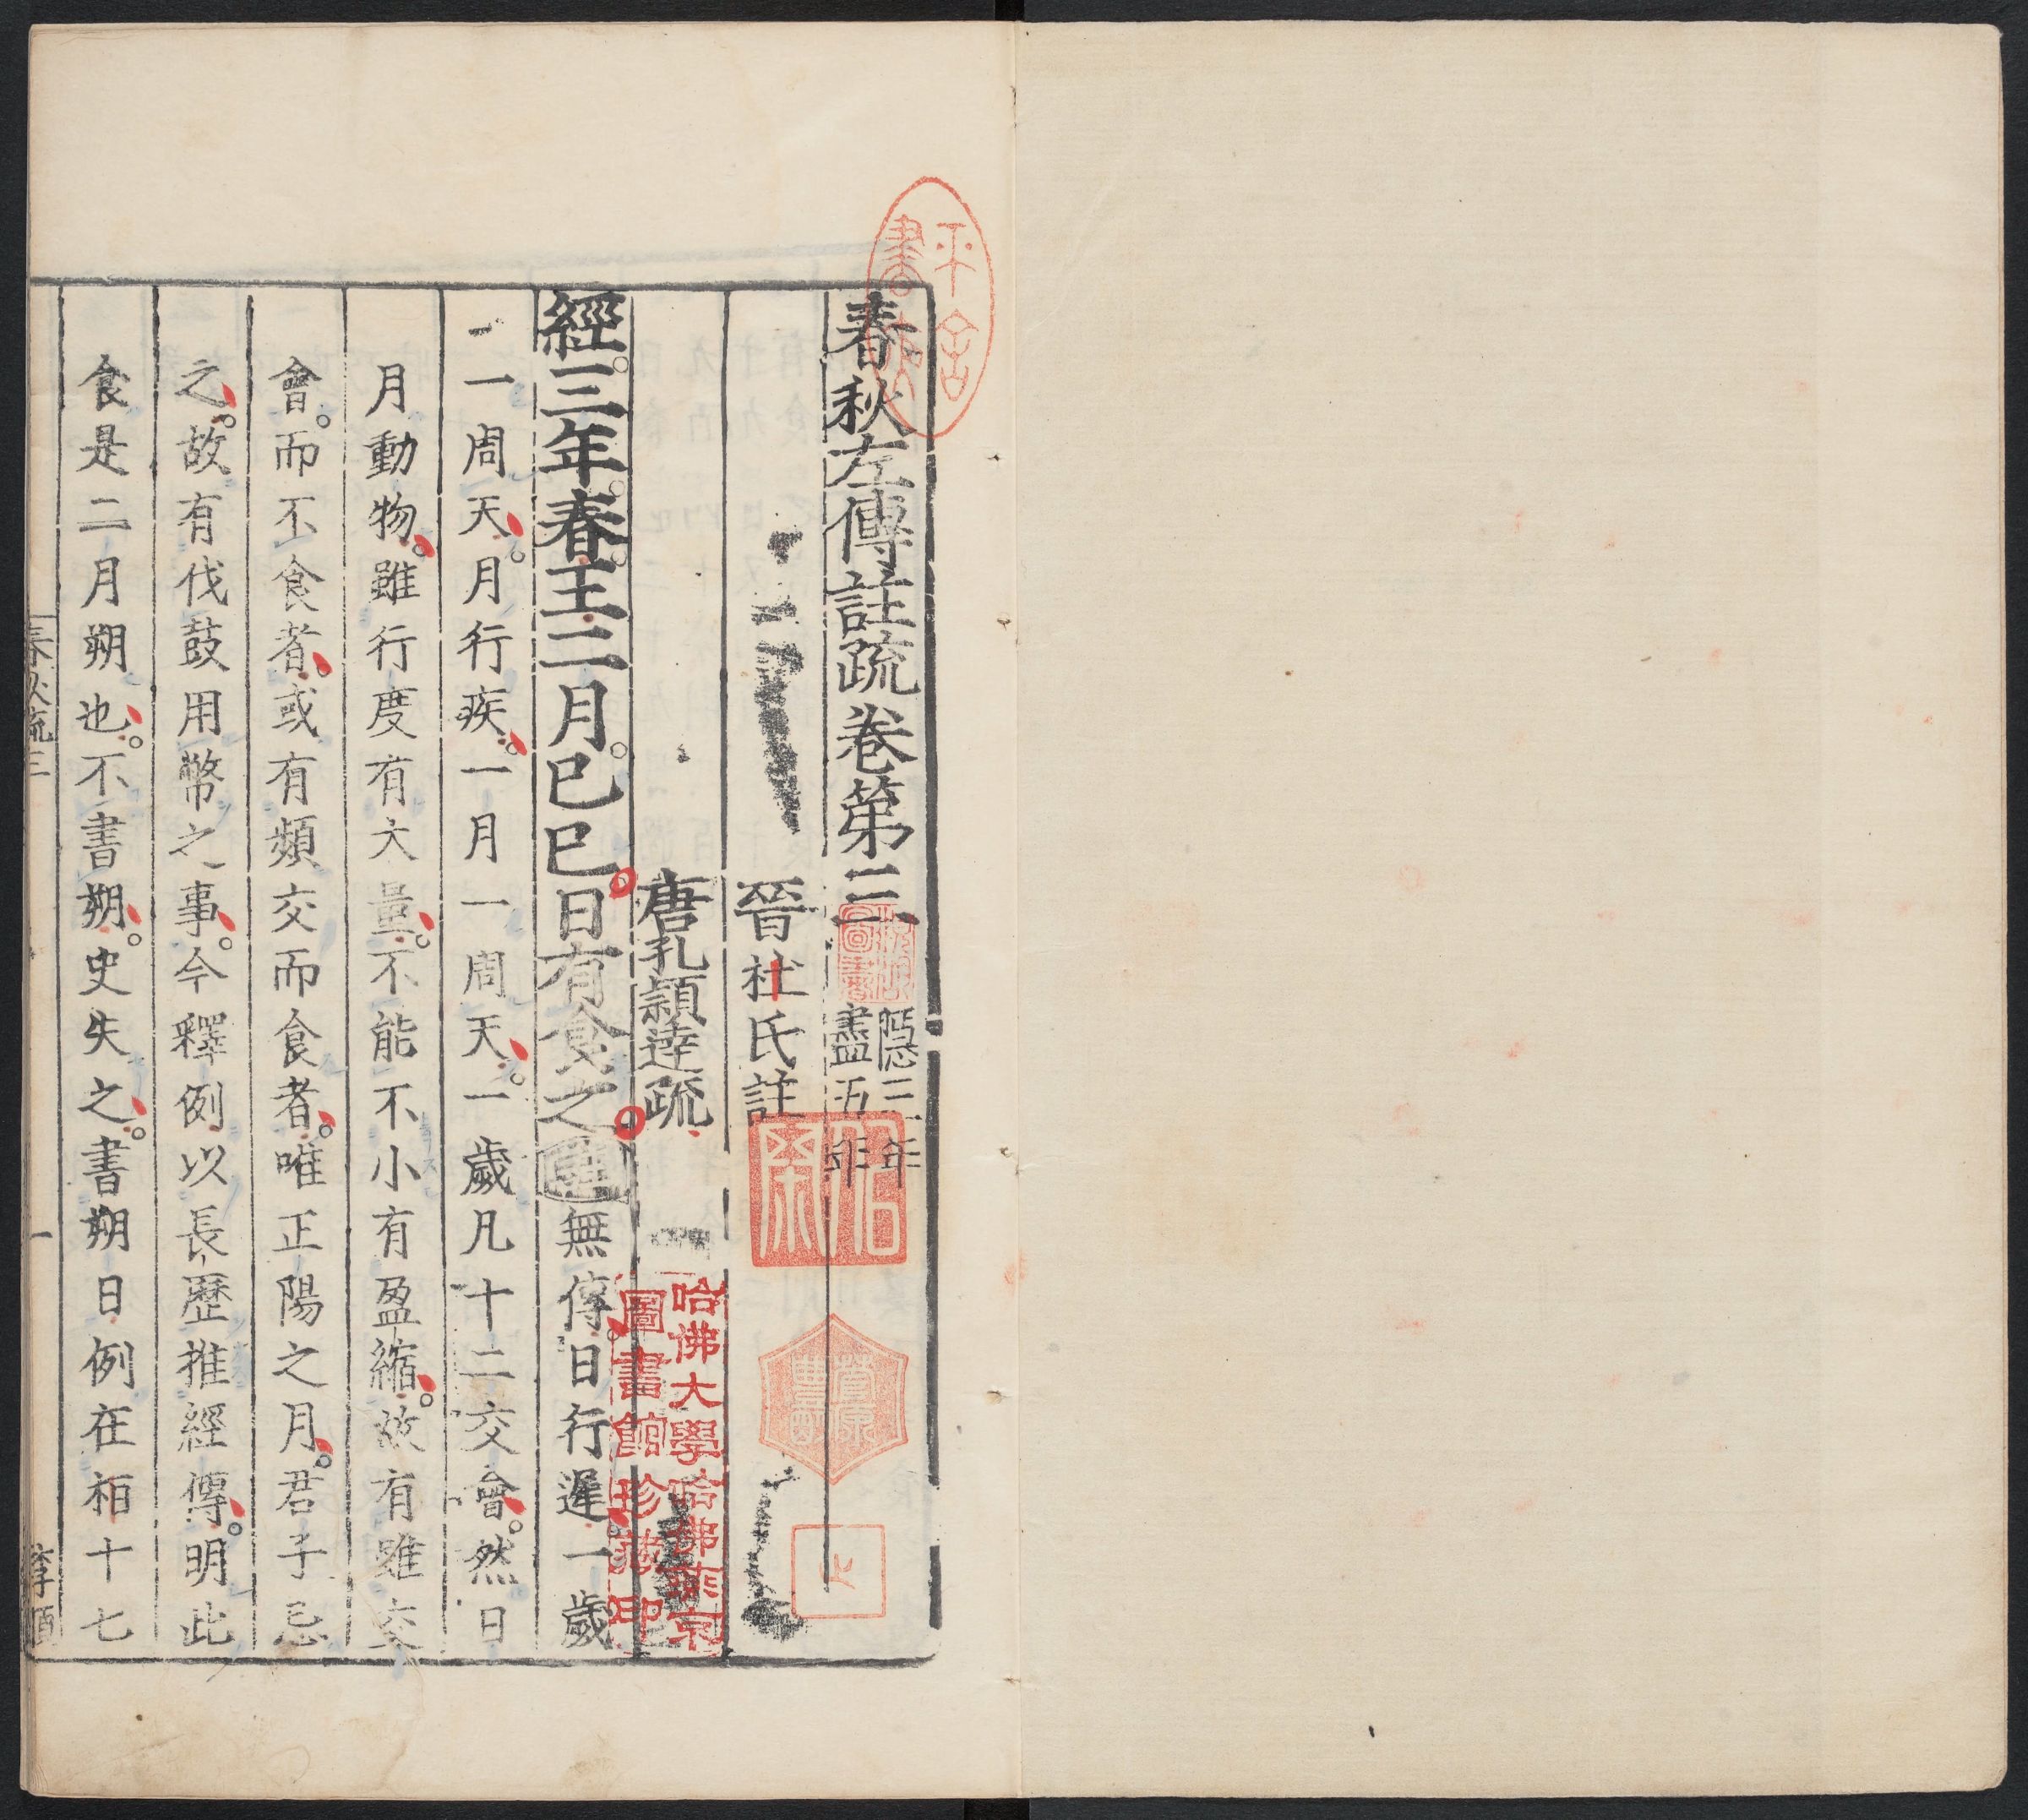 春秋左傳註疏卷第三 隱三年盡五年
晉杜氏註
唐孔穎達疏
經三年春王二月己巳日有食之註無停日行遲一歲
一周天月行疾一月一周天一歲凡十二交會然日
月動物雖行度有大量不能不小有盈縮故有雖交
會而不食者或有頻交而食者唯正陽之月君子忌
之故有伐鼓用幣之事今釋例以長歷推經傳明此
食是二月朔也不書朔史失之書朔日例在桓十七
春秋疏三
一
哈佛大學哈佛燕京
圖書館珍藏印